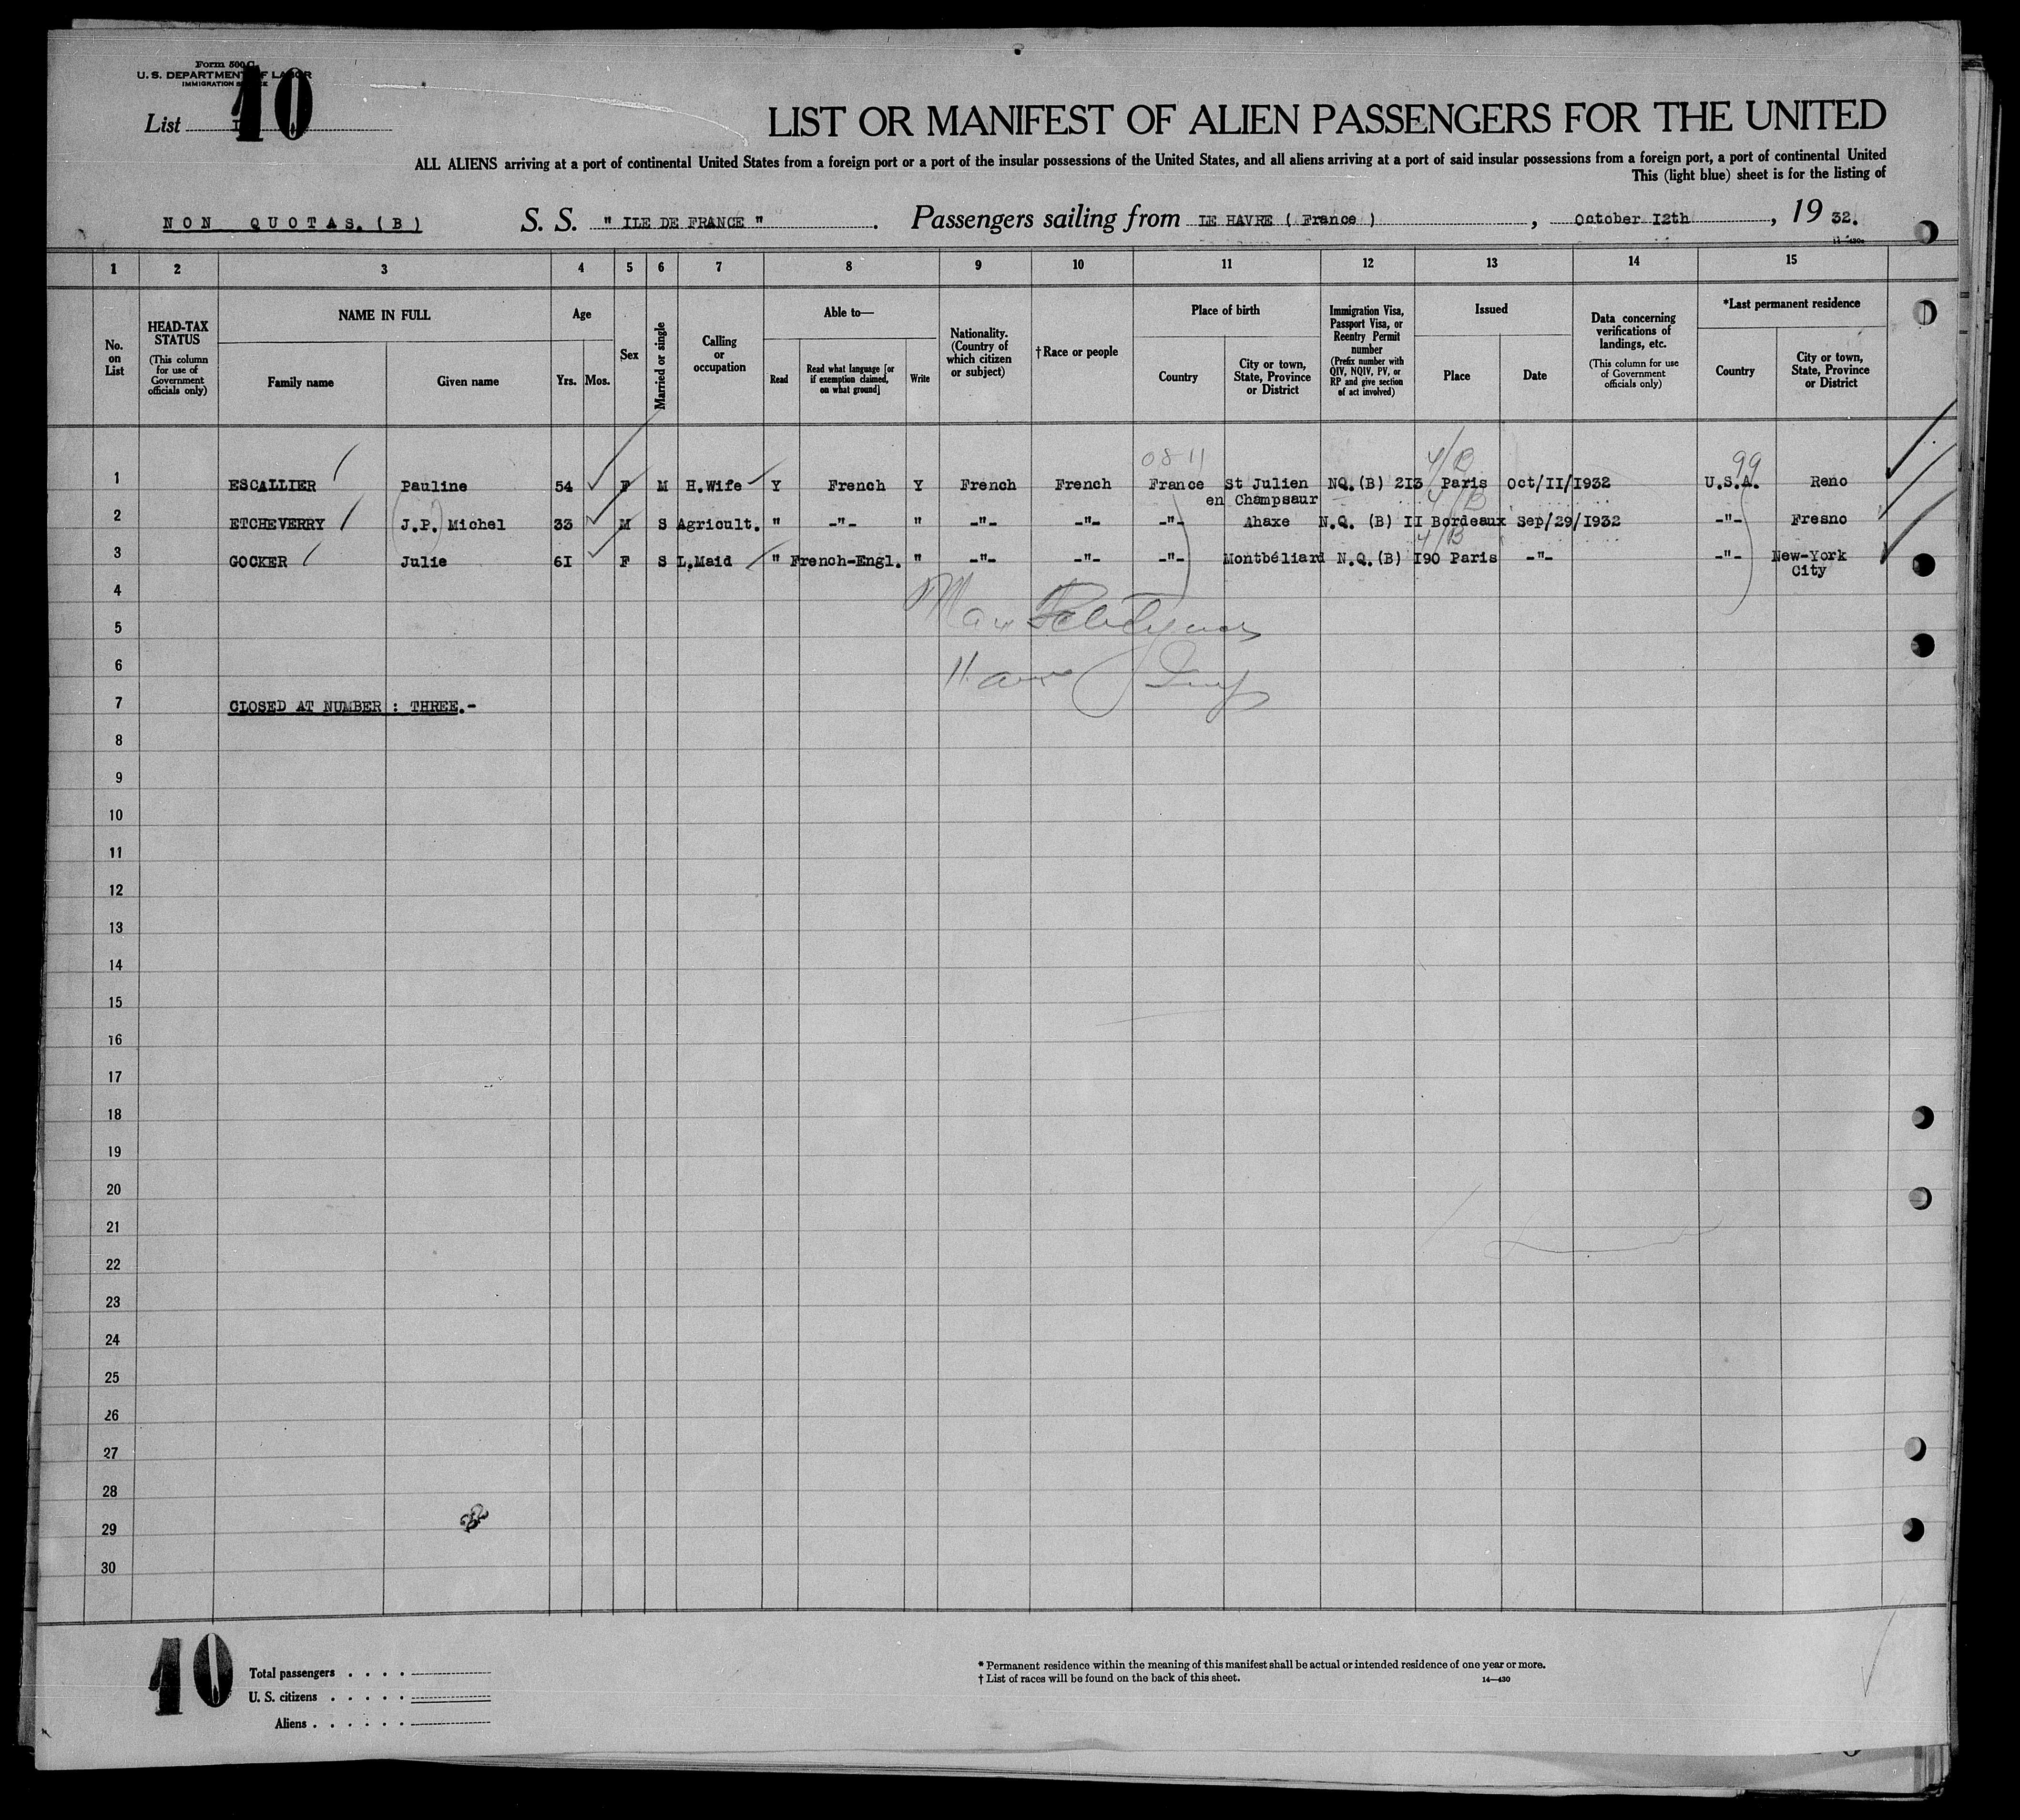 Form 500 C
U. S. DEPARTMENT OF LABOR
IMMIGRATION
List 10
LIST OR MANIFEST OF ALIEN PASSENGERS FOR THE UNITED
ALL ALIENS arriving at a port of continental United States from a foreign port or a port of the insular possessions of the United States, and all aliens arriving at a port of said insular possessions from a foreign port, a port of continental United
This (light blue) sheet is for the listing of
NON QUOTAS.(B) S. S. " ILE DE FRANCE " . Passengers sailing from LE HAVRE ( France ) , October I2th , 19 32.
1 2 3 4 5 6 7 8 9 10 11 12 13 14 15
No. on List
HEAD-TAX STATUS
(This column for use of Government officials only)
NAME IN FULL
Family name Given name
Age
Yrs. Mos.
Sex
Married or single
Calling or occupation
Able to—
Read
Read what language [or if exemption claimed, on what ground]
Write
Nationality. (Country of which citizen or subject)
† Race or people
Place of birth
Country
City or town, State, Province or District
Immigration Visa, Passport Visa, or Reentry Permit number
(Prefix number with QIV, NQIV, PV, or RP and give section of act involved)
Issued
Place Date
Data concerning verifications of landings, etc.
(This column for use of Government officials only)
*Last permanent residence
Country
City or town, State, Province or District
08 11 4/B 99
1 ESCALLIER Pauline 54 F M H.Wife Y French Y French French France St Julien NQ.(B) 2I3 Paris Oct/II/I932 U.S.A. Reno
en Champsaur 4/B
2 ETCHEVERRY (J.P.) Michel 33 M S Agricult. " -"- " -"- -"- -"- Ahaxe N.Q. (B) II Bordeaux Sep/29/I932 -"- Fresno
4/B
3 GOCKER Julie 6I F S L.Maid " French-Engl. " -"- -"- -"- Montbéliard N.Q.(B) I90 Paris -"- -"- New-York
City
4
5
6
7 CLOSED AT NUMBER : THREE.-
8
9
10
11
12
13
14
15
16
17
18
19
20
21
22
23
24
25
26
27
28
29
30
10
Total passengers . . . .
U. S. citizens . . . . .
Aliens . . . . . .
* Permanent residence within the meaning of this manifest shall be actual or intended residence of one year or more.
† List of races will be found on the back of this sheet. 14—430